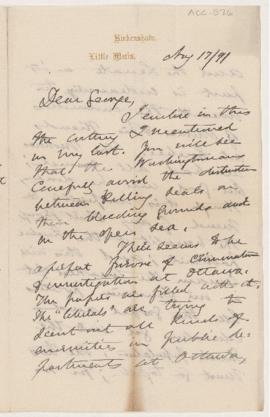 ACC. 376
Birkenshaw,
Little Metis.
Aug 17/91
Dear George,
I enclose in this
the cutting I mentioned
in my last. You will see
that the Washingtonians
carefully avoid the distinction
between killing seals on
their breeding grounds and
in the open sea.
There seems to be
a perfect furore of crimination
& investigation at Ottawa.
The papers are filled with it.
The "liberals" are trying to
scent out all kinds of
enormities in public de-
partments at Ottawa,